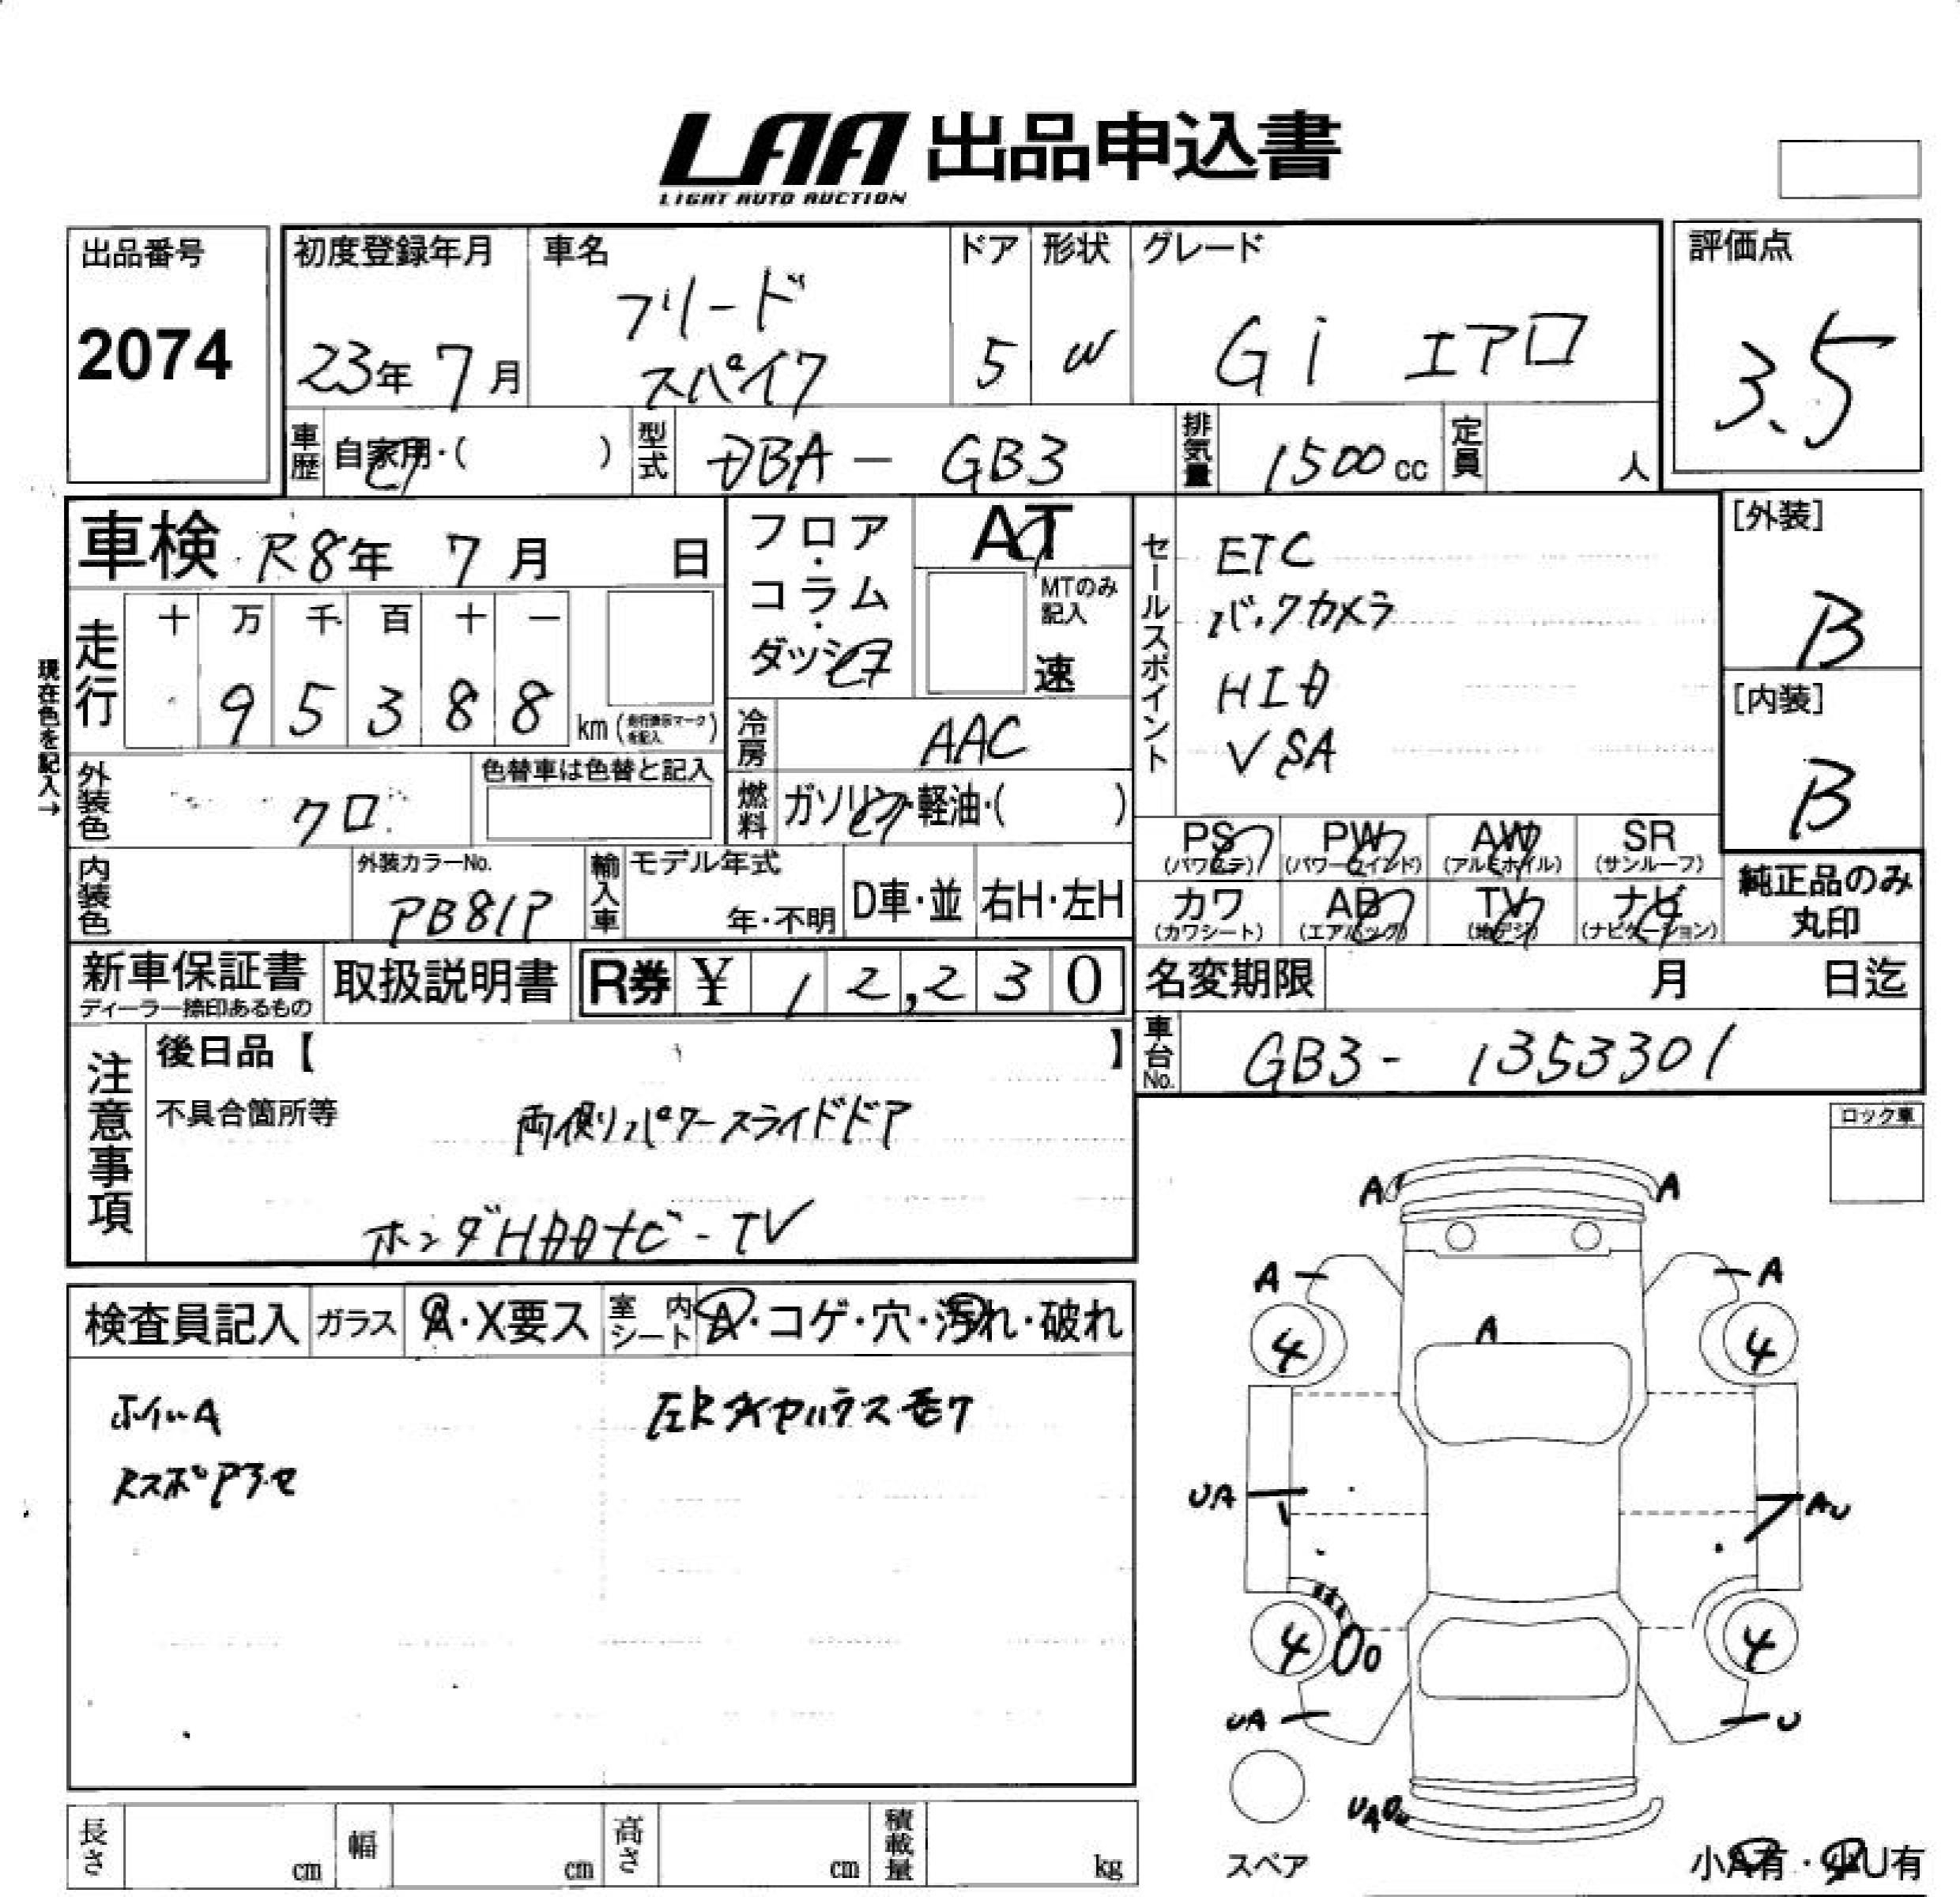 LAA 出品申込書
LIGHT AUTO AUCTION
出品番号
2074
初度登録年月
23年 7月
車名
フリード
スパイク
ドア
5
形状
W
グレード
Gi エアロ
評価点
3.5
車歴 自家用・( )
型式 DBA - GB3
排気量 1500cc
定員 人
車検 R8年 7月 日
フロア・コラム・ダッシュ
AT
MTのみ記入
速
セールスポイント
ETC
バックカメラ
HID
VSA
[外装]
B
[内装]
B
現在色を記入→
走行
十 万 千 百 十 一
9 5 3 8 8 km (走行表示マークを記入)
冷房 AAC
外装色 クロ
色替車は色替と記入
燃料 ガソリン・軽油・( )
PS (パワステ) PW (パワーウインド) AW (アルミホイル) SR (サンルーフ)
カワ (カワシート) AB (エアバック) TV (地デジ) ナビ (ナビゲーション)
純正品のみ丸印
内装色
外装カラーNo.
PB81P
輸入車
モデル年式
年・不明
D車・並
右H・左H
新車保証書
ディーラー捺印あるもの
取扱説明書
R券 ¥ 12,230
名変期限 月 日迄
車台No. GB3- 1353301
注意事項
後日品【 】
不具合箇所等
両側パワースライドドア
ホンダHDDナビ-TV
ロック車
検査員記入
ガラス A・X要ス
室内シート A・コゲ・穴・汚れ・破れ
ホイルA
A A
A A
A
4 4
UA AU
4 4
UA U
スペア
小A有・小U有
長さ cm
幅 cm
高さ cm
積載量 kg